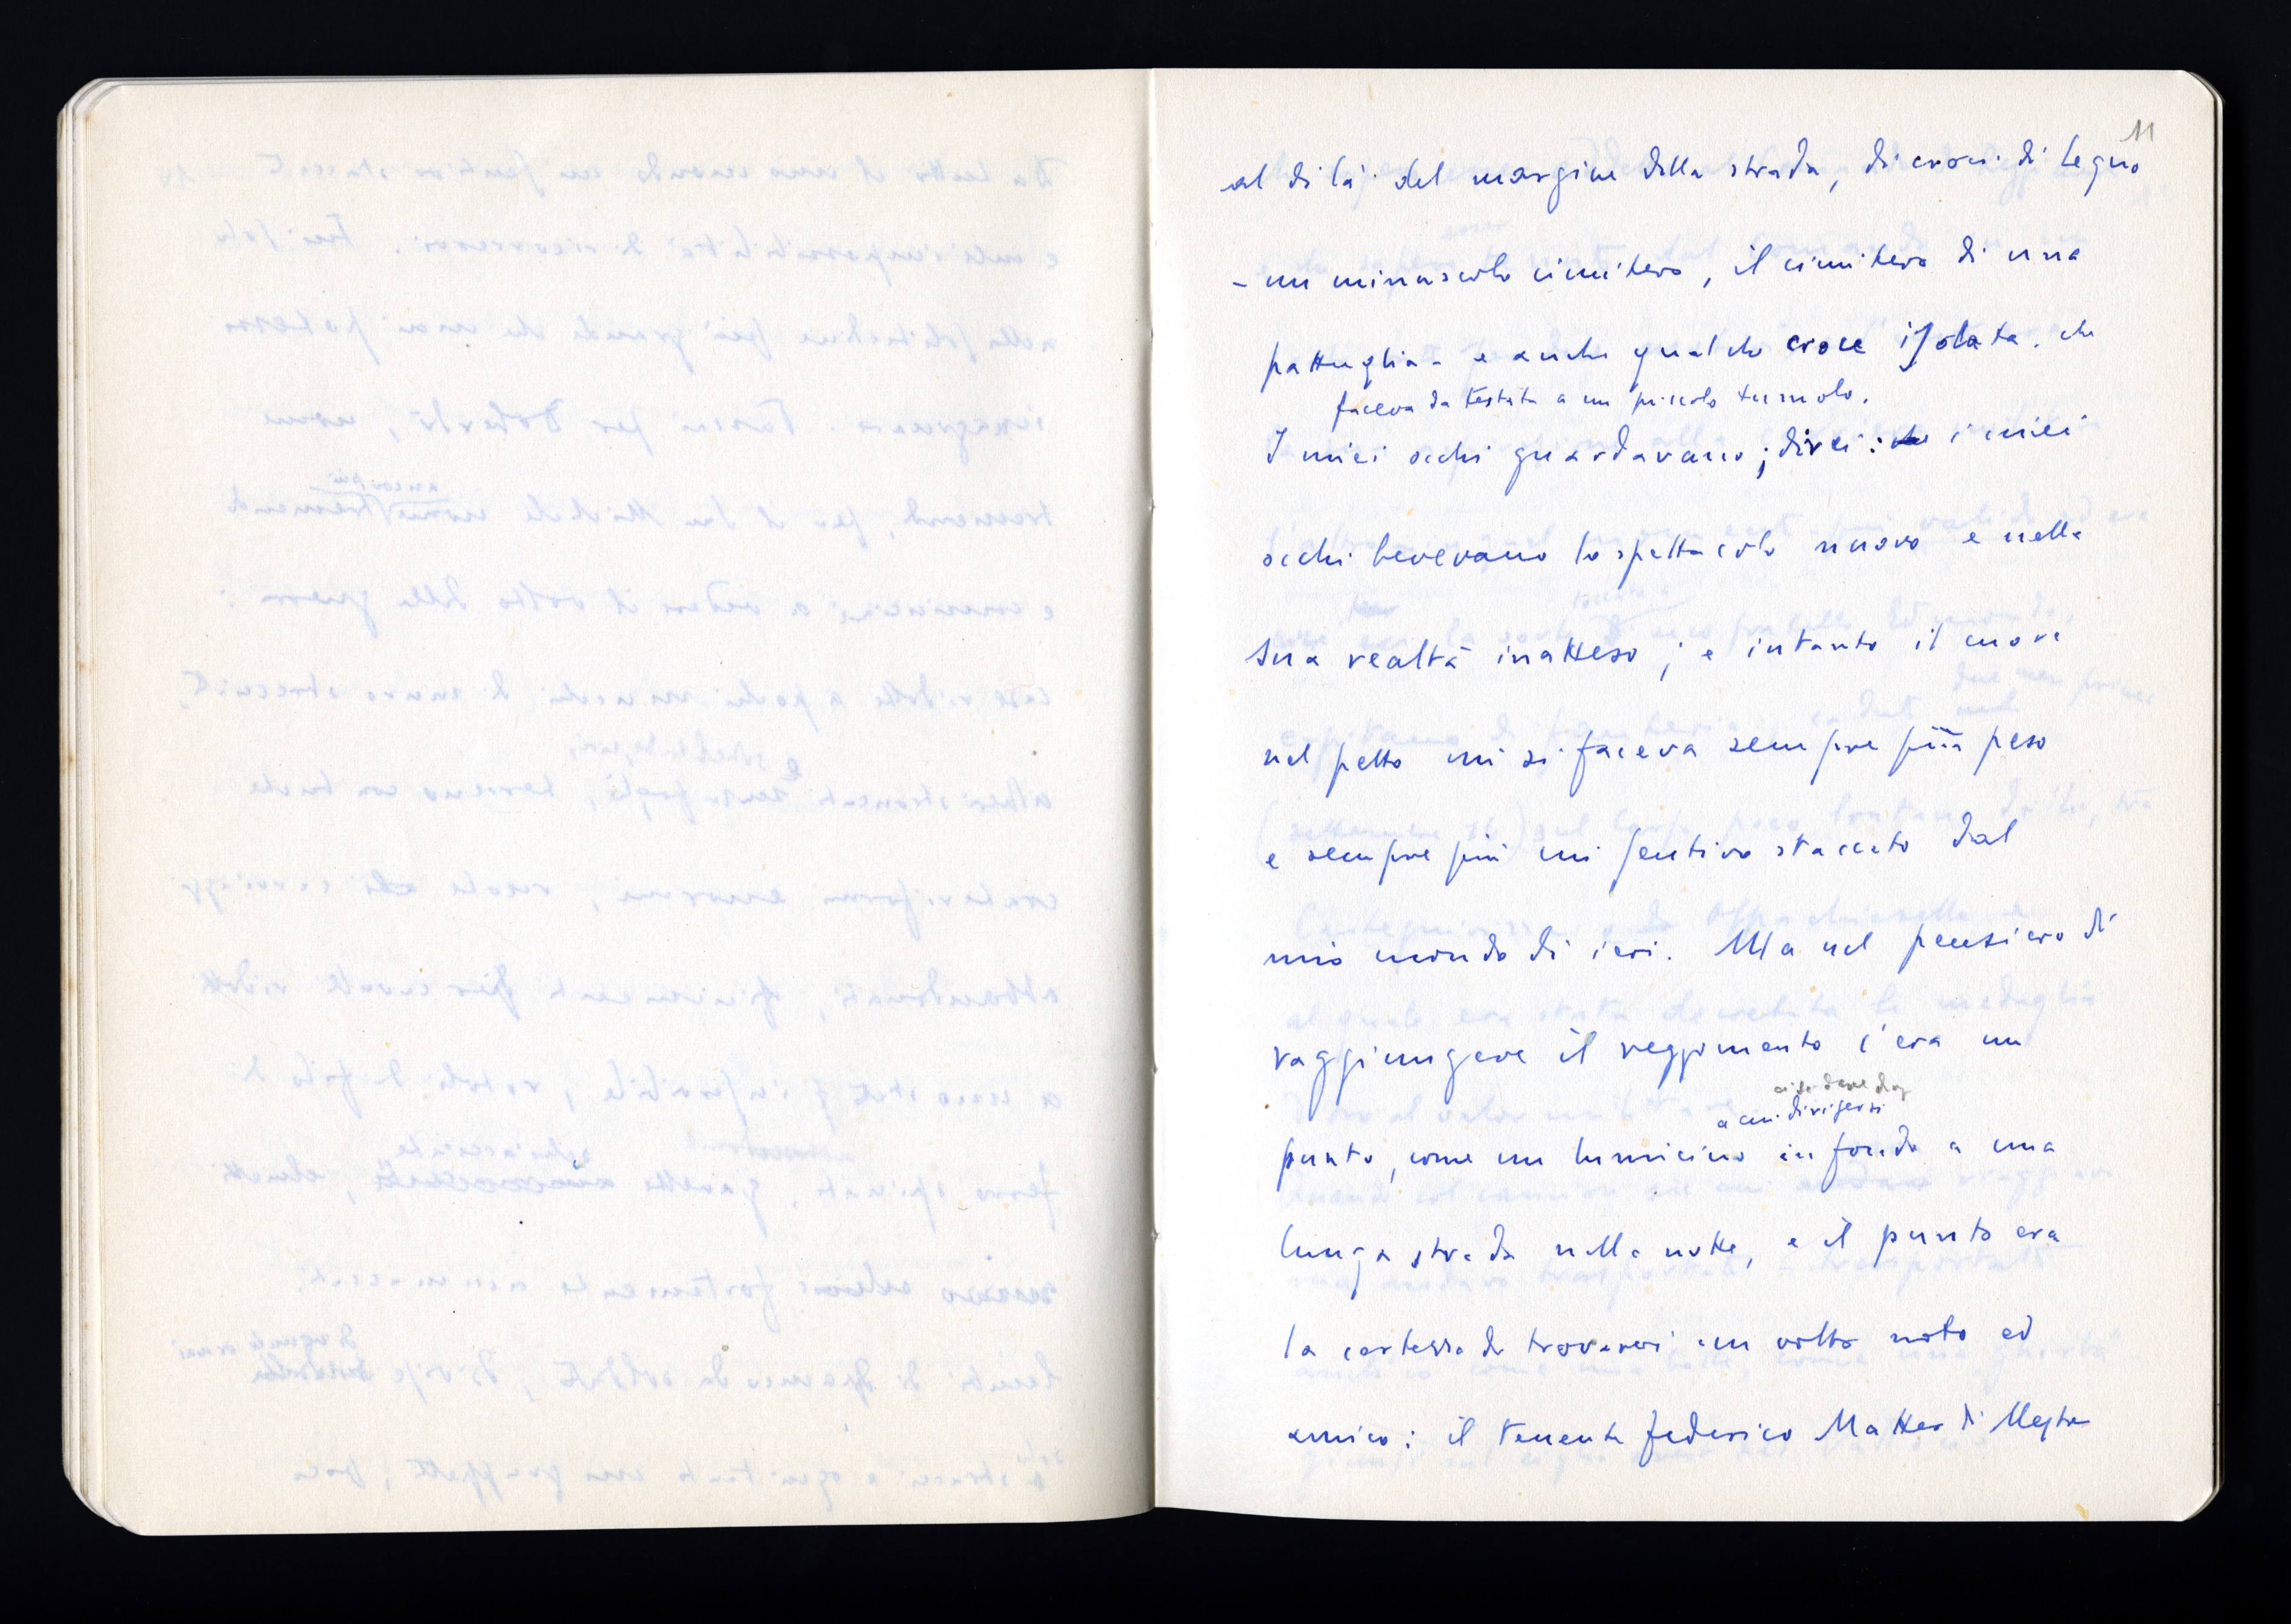 11
al di là del margine della strada, di croci di legno
- un minuscolo cimitero, il cimitero di una
pattuglia - e anche qualche croce isolata. che
faceva da testata a un piccolo tumolo.
I miei occhi guardavano; direi: che i miei
occhi bevevano lo spettacolo nuovo e nella
sua realtà inatteso; e intanto il cuore
nel petto mi si faceva sempre più peso
e sempre più mi sentivo staccato dal
mio mondo di ieri. Ma nel pensiero di
raggiungere il reggimento c'era un
a cui dirigersi
punto, come un lumicino in fondo a una
lunga strada nella notte, e il punto era
la certezza di trovarvi un volto noto ed
amico: il tenente Federico Matter di Mestre